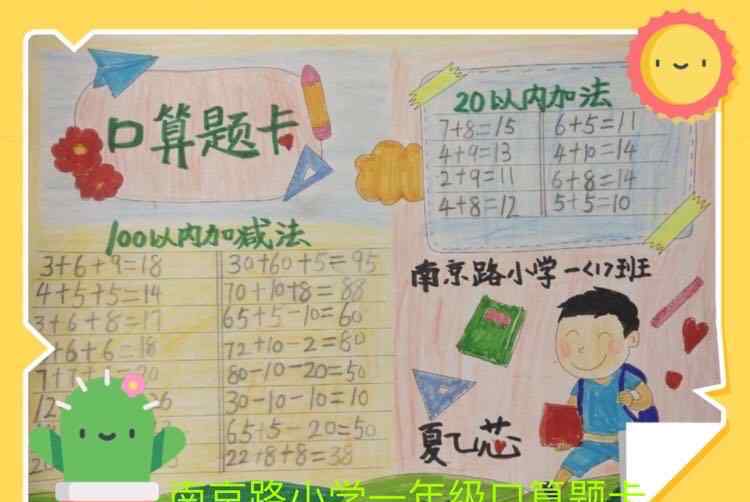 口算题卡
100以内加减法
3+6+9=18
4+5+5=14
3+6+8=17
+6+6=18
30+60+5=95
70+10+8=88
65+5-10=60
72+10-2=80
80-10-20=50
30-10-10=10
65+5-20=50
22+8+8=38
20以内加法
7+8=15
4+9=13
2+9=11
4+8=12
6+5=11
4+10=14
6+8=14
5+5=10
南京路小学一<1>班
夏乙芯
南京路小学一年级口算题卡